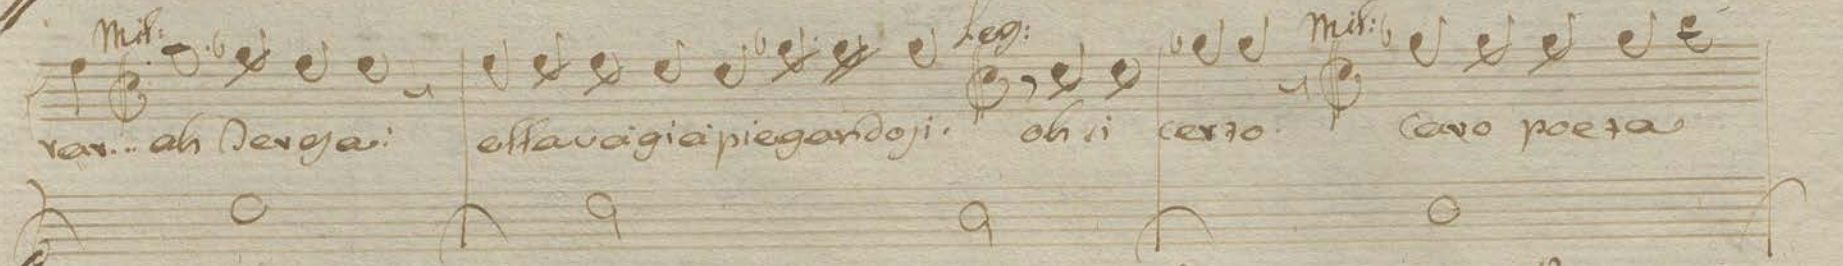 Mit: Leg: Mit:
rar... ah Deresa: essa va già piegandosi. oh si certo. Caro poeta